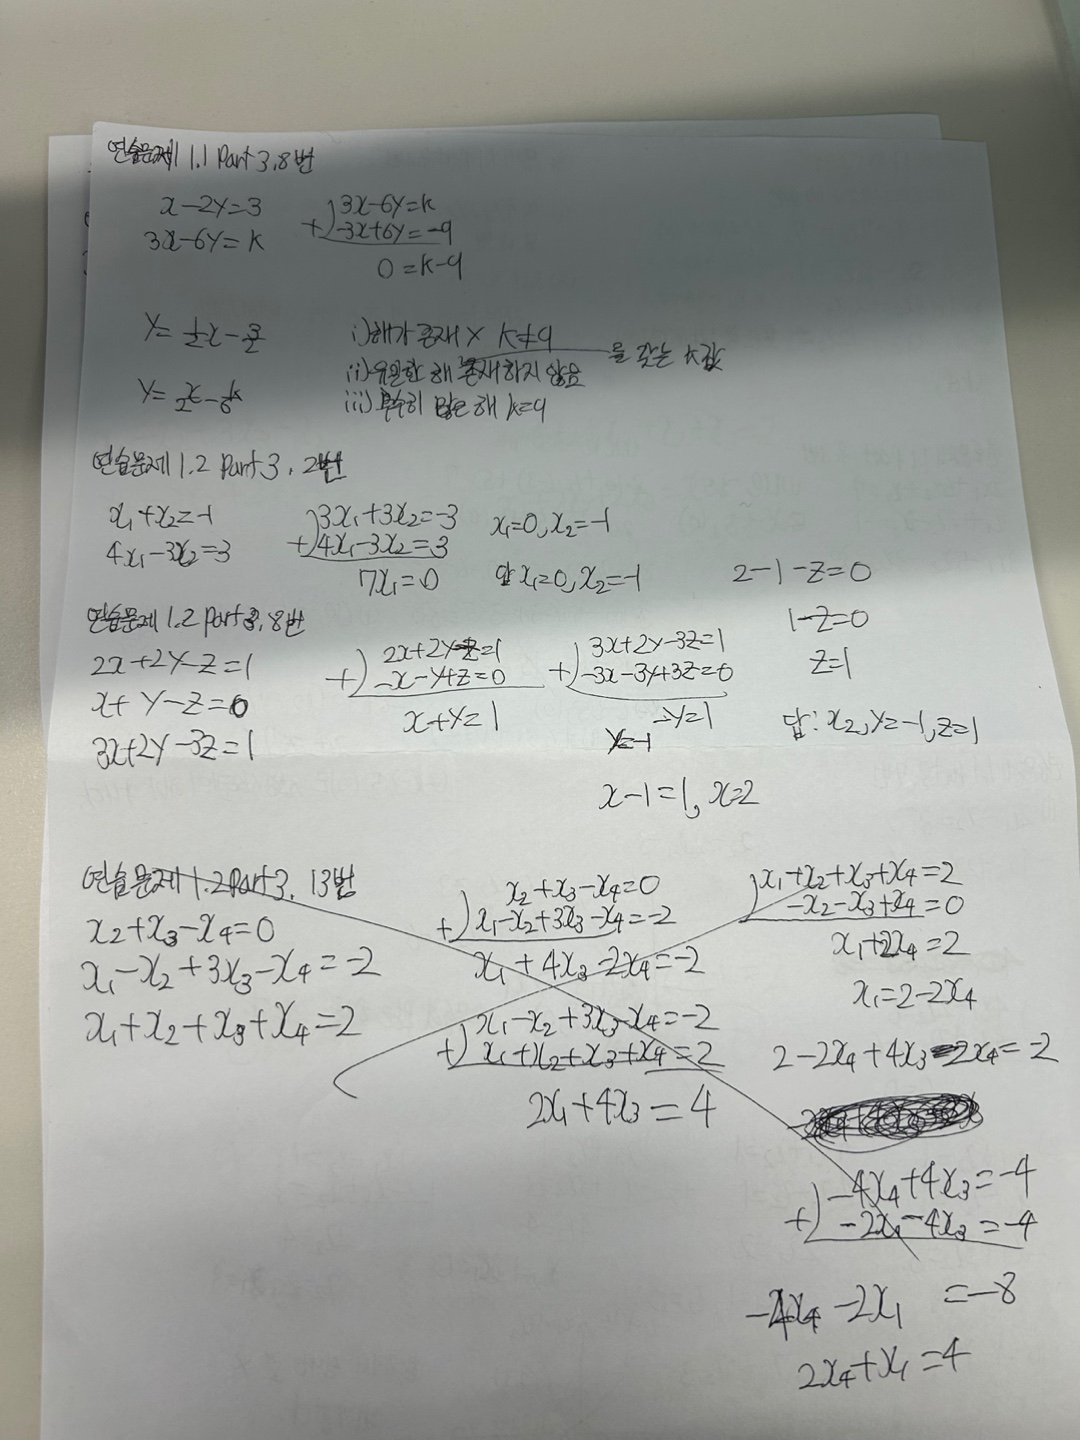 연습문제 1.1 Part 3, 8번
x-2y=3
3x-6y=k
3x-6y=k
+) -3x+6y=-9
0=k-9
y=1/2x-3/2
y=x/2-1/6k
i) 해가 존재 X k≠9
ii) 유일한 해 존재하지 않음 을 갖는 k값
iii) 무수히 많은 해 k=9
연습문제 1.2 Part 3, 2번
x₁+x₂=-1
4x₁-3x₂=3
3x₁+3x₂=-3
+) 4x₁-3x₂=3
7x₁=0
x₁=0, x₂=-1
답 x₁=0, x₂=-1
연습문제 1.2 Part 3, 8번
2x+2y-z=1
x+y-z=0
3x+2y-3z=1
2x+2y-z=1
+) -x-y+z=0
x+y=1
3x+2y-3z=1
+) -3x-3y+3z=0
-y=1
y=-1
x-1=1, x=2
2-1-z=0
1-z=0
z=1
답: x2, y=-1, z=1
연습문제 1.2 Part 3, 13번
x₂+x₃-x₄=0
x₁-x₂+3x₃-x₄=-2
x₁+x₂+x₃+x₄=2
x₂+x₃-x₄=0
+) x₁-x₂+3x₃-x₄=-2
x₁+4x₃-2x₄=-2
x₁-x₂+3x₃-x₄=-2
+) x₁+x₂+x₃+x₄=2
2x₁+4x₃=4
x₁+x₂+x₃+x₄=2
-x₂-x₃+x₄=0
x₁+2x₄=2
x₁=2-2x₄
2-2x₄+4x₃-2x₄=-2
-4x₄+4x₃=-4
+) -2x₁-4x₃=-4
-4x₄-2x₁=-8
2x₄+x₁=4